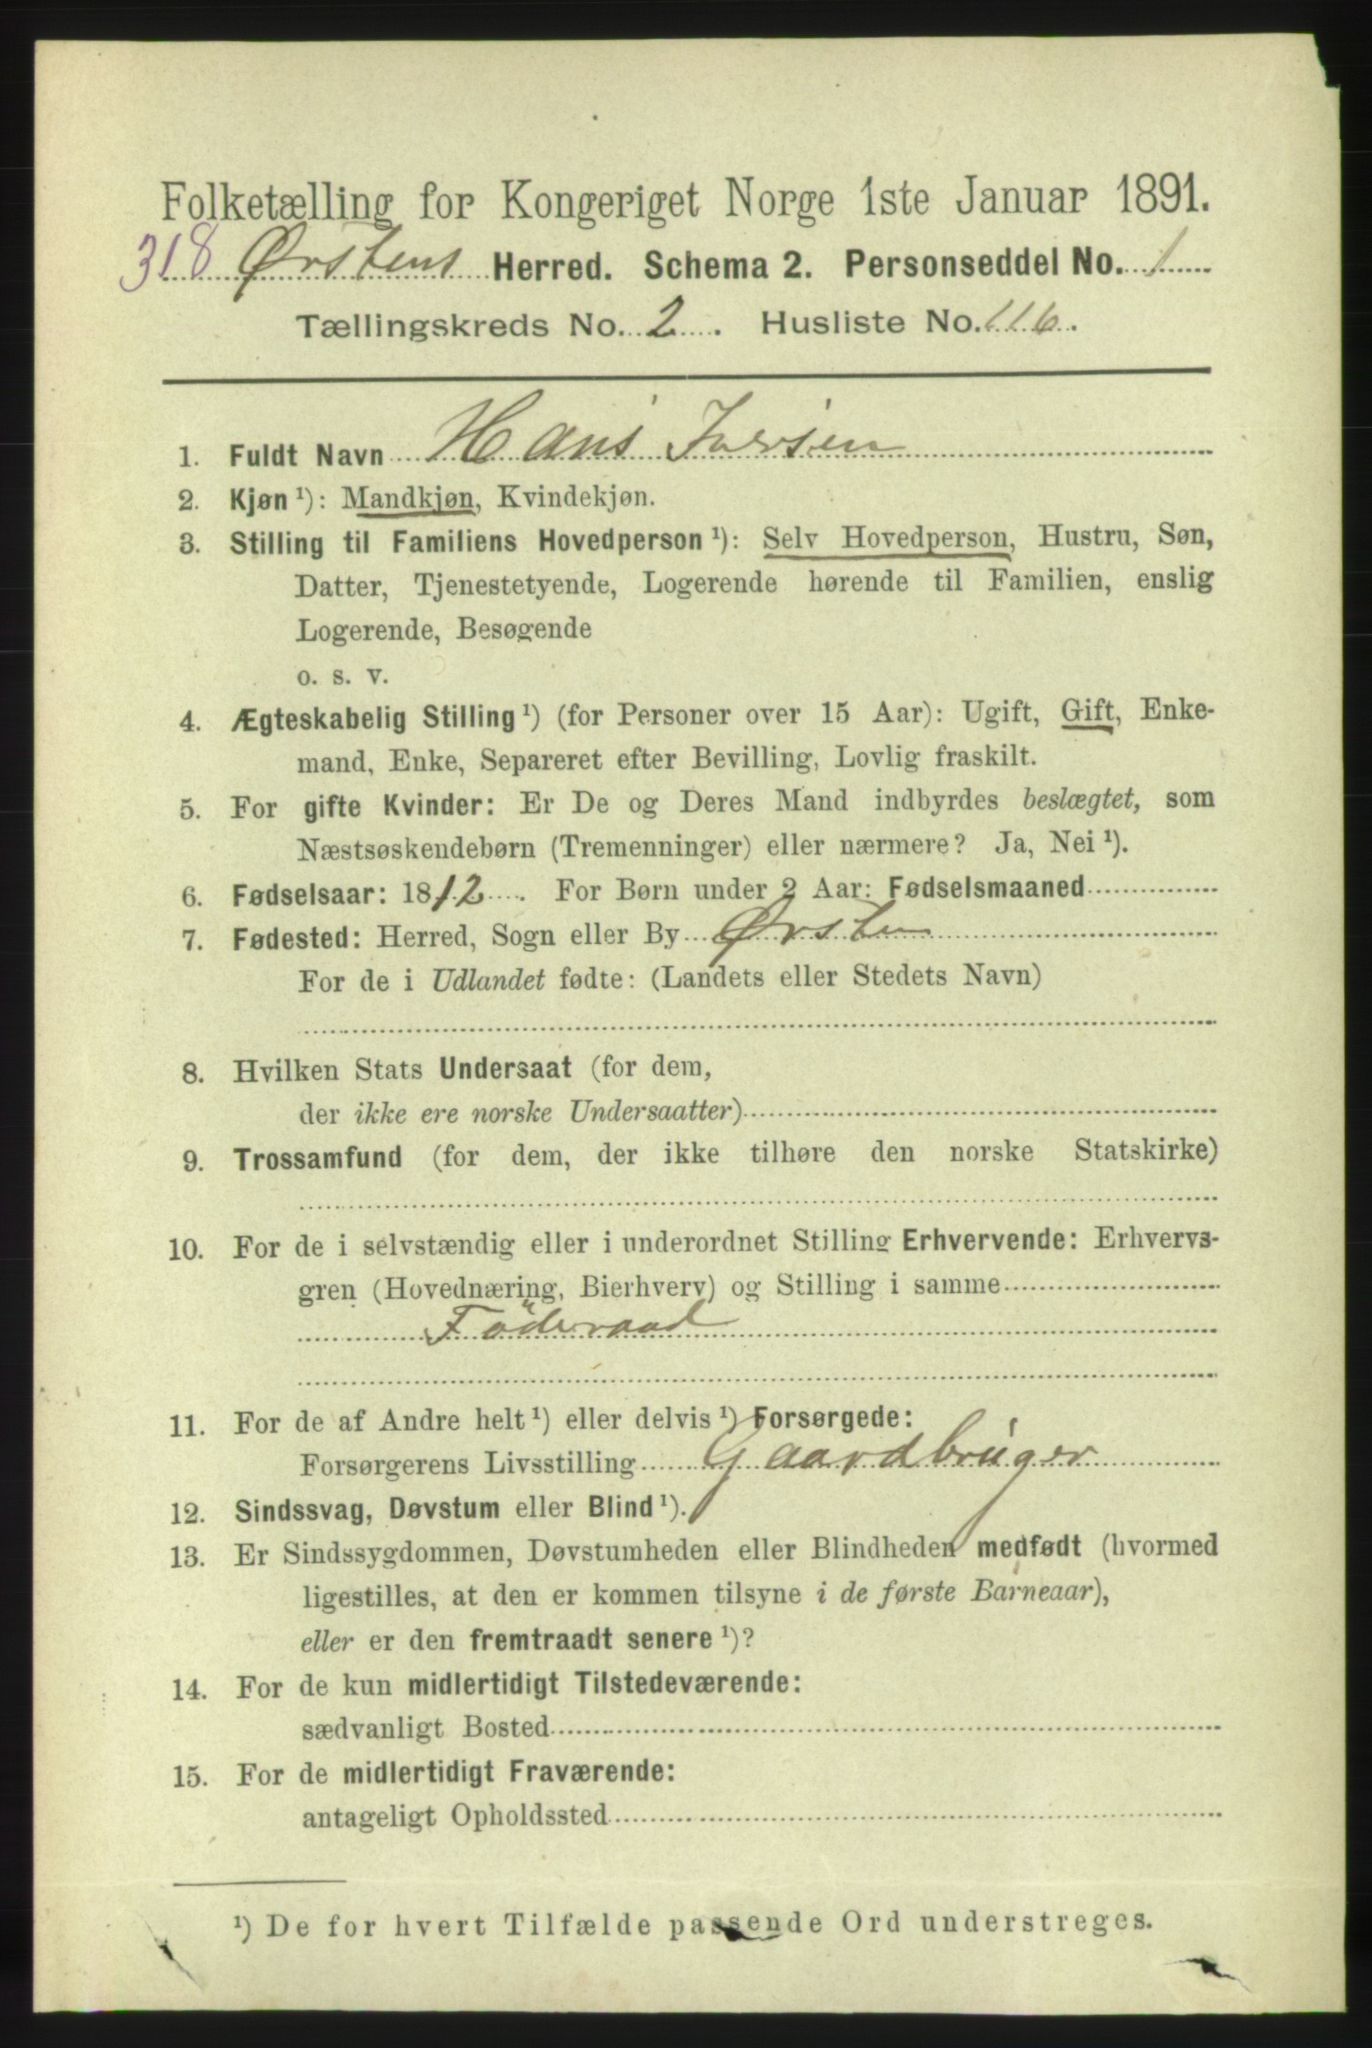 Folketælling for Kongeriget Norge 1ste Januar 1891.
318 Ørstens Herred. Schema 2. Personseddel No. 1
Tællingskreds No. 2. Husliste No. 116.
1. Fuldt Navn Hans Iversen
2. Kjøn ¹): Mandkjøn, Kvindekjøn.
3. Stilling til Familiens Hovedperson ¹): Selv Hovedperson, Hustru, Søn,
Datter, Tjenestetyende, Logerende hørende til Familien, enslig
Logerende, Besøgende
o. s. v.
4. Ægteskabelig Stilling ¹) (for Personer over 15 Aar): Ugift, Gift, Enke-
mand, Enke, Separeret efter Bevilling, Lovlig fraskilt.
5. For gifte Kvinder: Er De og Deres Mand indbyrdes beslægtet, som
Næstsøskendebørn (Tremenninger) eller nærmere? Ja, Nei ¹).
6. Fødselsaar: 1812. For Børn under 2 Aar: Fødselsmaaned
7. Fødested: Herred, Sogn eller By Ørsten
For de i Udlandet fødte: (Landets eller Stedets Navn)
8. Hvilken Stats Undersaat (for dem,
der ikke ere norske Undersaatter)
9. Trossamfund (for dem, der ikke tilhøre den norske Statskirke)
10. For de i selvstændig eller i underordnet Stilling Erhvervende: Erhvervs-
gren (Hovednæring, Bierhverv) og Stilling i samme
Föderaad
11. For de af Andre helt ¹) eller delvis ¹) Forsørgede:
Forsørgerens Livsstilling Gaardbruger
12. Sindssvag, Døvstum eller Blind ¹).
13. Er Sindssygdommen, Døvstumheden eller Blindheden medfødt (hvormed
ligestilles, at den er kommen tilsyne i de første Barneaar),
eller er den fremtraadt senere ¹)?
14. For de kun midlertidigt Tilstedeværende:
sædvanligt Bosted
15. For de midlertidigt Fraværende:
antageligt Opholdssted
¹) De for hvert Tilfælde passende Ord understreges.